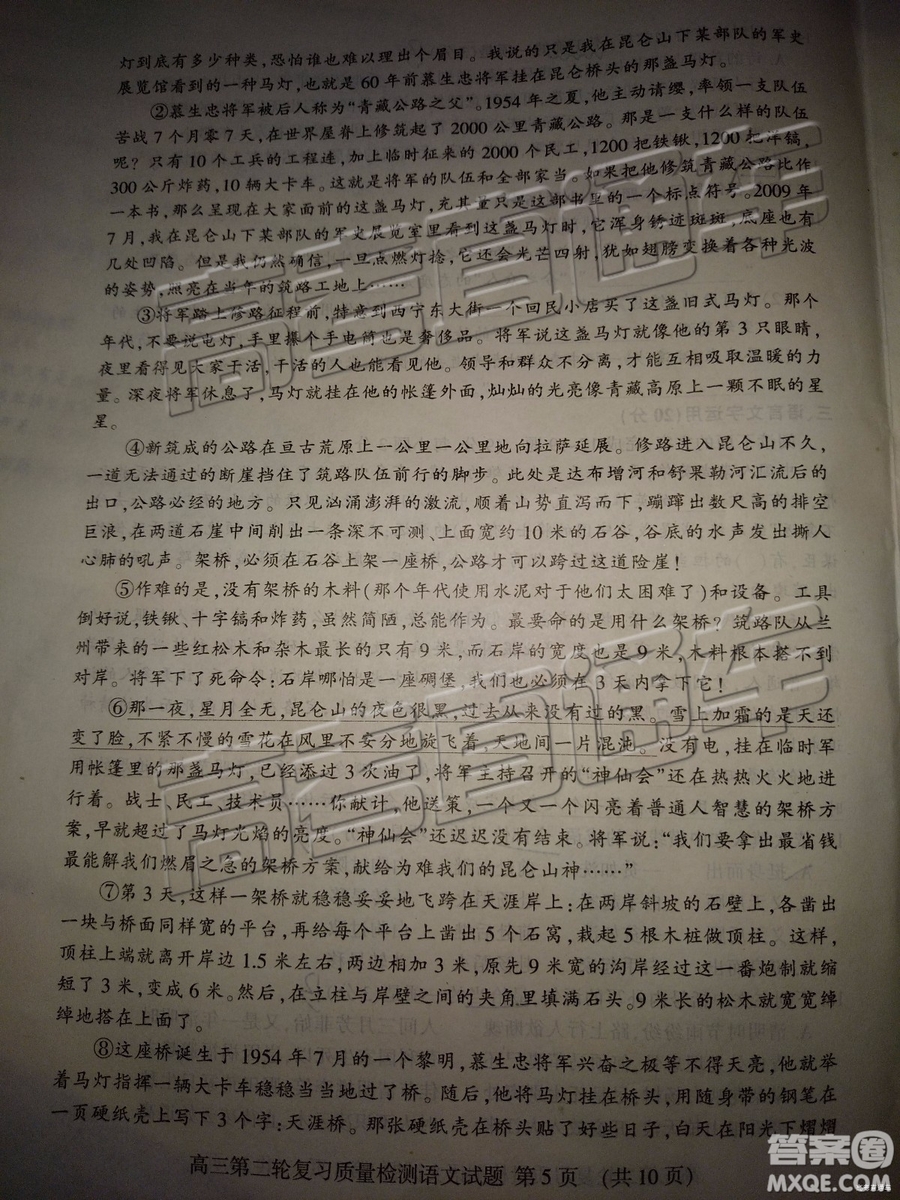 灯到底有多少种类,恐怕谁也难以理出个眉目。我说的只是我在昆仑山下某部队的军史
展览馆看到的一种马灯,也就是 60 年前慕生忠将军挂在昆仑桥头的那盏马灯。
②慕生忠将军被后人称为“青藏公路之父”。1954 年之夏,他主动请缨,率领一支队伍
苦战 7 个月零 7 天,在世界屋脊上修筑起了 2000 公里青藏公路。那是一支什么样的队伍
呢? 只有 10 个工兵的工程连,加上临时征来的 2000 个民工,1200 把铁锹,1200 把洋镐,
300 公斤炸药,10 辆大卡车。这就是将军的队伍和全部家当。如果把他修筑青藏公路比作
一本书,那么呈现在大家面前的这盏马灯,充其量只是这部书里的一个标点符号。2009 年
7 月,我在昆仑山下某部队的军史展览室里看到这盏马灯时,它浑身锈迹斑斑,底座也有
几处凹陷。但是我仍然确信,一旦点燃灯捻,它还会光芒四射,犹如翅膀变换着各种光波
的姿势,照亮在当年的筑路工地上……
③将军踏上修路征程前,特意到西宁东大街一个回民小店买了这盏旧式马灯。那个
年代,不要说电灯,手里攥个手电筒也是奢侈品。将军说这盏马灯就像他的第 3 只眼睛,
夜里看得见大家干活,干活的人也能看见他。领导和群众不分离,才能互相吸取温暖的力
量。深夜将军休息了,马灯就挂在他的帐篷外面,灿灿的光亮像青藏高原上一颗不眠的星
星。
④新筑成的公路在亘古荒原上一公里一公里地向拉萨延展。修路进入昆仑山不久,
一道无法通过的断崖挡住了筑路队伍前行的脚步。此处是达布增河和舒果勒河汇流后的
出口,公路必经的地方。只见汹涌澎湃的激流,顺着山势直泻而下,蹦蹿出数尺高的排空
巨浪,在两道石崖中间削出一条深不可测、上面宽约 10 米的石谷,谷底的水声发出撕人
心肺的吼声。架桥,必须在石谷上架一座桥,公路才可以跨过这道险崖!
⑤作难的是,没有架桥的木料(那个年代使用水泥对于他们太困难了)和设备。工具
倒好说,铁锹、十字镐和炸药,虽然简陋,总能作为。最要命的是用什么架桥? 筑路队从兰
州带来的一些红松木和杂木最长的只有 9 米,而石岸的宽度也是 9 米,木料根本搭不到
对岸。将军下了死命令:石岸哪怕是一座碉堡,我们也必须在 3 天内拿下它!
⑥那一夜,星月全无,昆仑山的夜色很黑,过去从来没有过的黑。雪上加霜的是天还
变了脸,不紧不慢的雪花在风里不安分地旋飞着,天地间一片混沌。没有电,挂在临时军
用帐篷里的那盏马灯,已经添过 3 次油了,将军主持召开的“神仙会”还在热热火火地进
行着。战士、民工、技术员……你献计,他送策,一个又一个闪亮着普通人智慧的架桥方
案,早就超过了马灯光焰的亮度。“神仙会”还迟迟没有结束。将军说:“我们要拿出最省钱
最能解我们燃眉之急的架桥方案,献给为难我们的昆仑山神……”
⑦第 3 天,这样一架桥就稳稳妥妥地飞跨在天涯岸上:在两岸斜坡的石壁上,各凿出
一块与桥面同样宽的平台,再给每个平台上凿出 5 个石窝,栽起 5 根木桩做顶柱。这样,
顶柱上端就离开岸边 1.5 米左右,两边相加 3 米,原先 9 米宽的沟岸经过这一番炮制就缩
短了 3 米,变成 6 米。然后,在立柱与岸壁之间的夹角里填满石头。9 米长的松木就宽宽绰
绰地搭在上面了。
⑧这座桥诞生于 1954 年 7 月的一个黎明,慕生忠将军兴奋之极等不得天亮,他就举
着马灯指挥一辆大卡车稳稳当当地过了桥。随后,他将马灯挂在桥头,用随身带的钢笔在
一页硬纸壳上写下 3 个字:天涯桥。那张硬纸壳在桥头贴了好些日子,白天在阳光下熠熠
高三第二轮复习质量检测语文试题 第 5 页 (共 10 页)
高考直通车
高考直通车
高考直通车
答案圈
MXQE.COM